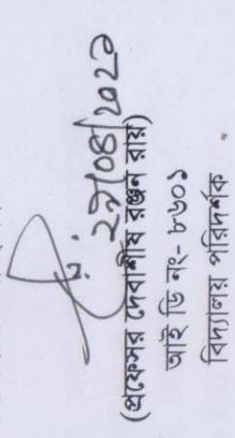 ২৭/০৪/২০২১
(প্রফেসর দেবাশীষ রঞ্জন রায়)
আই ডি নং- ৮৬০১
বিদ্যালয় পরিদর্শক